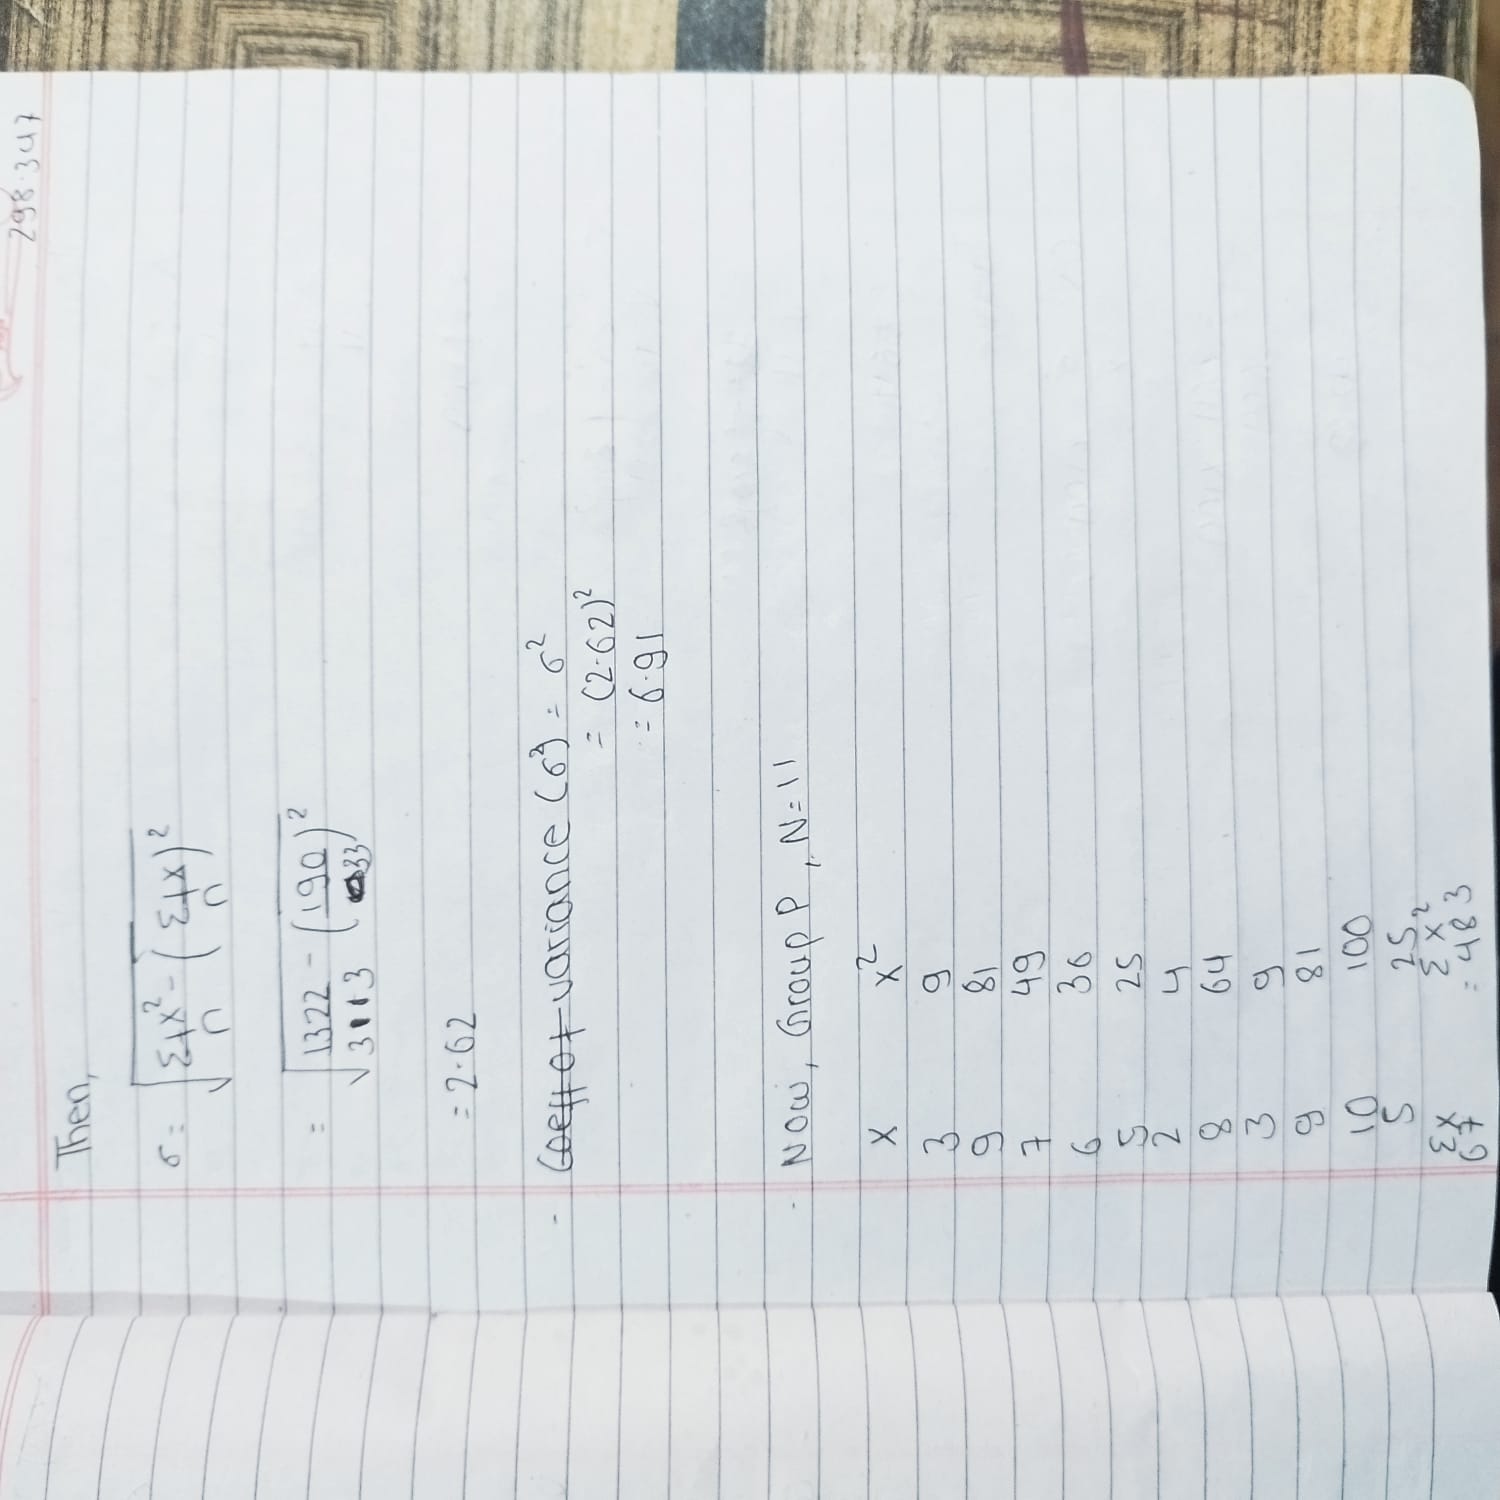 298.347
Then,
σ = √(Σfx²/n - (Σfx/n)²)
= √(1322/33 - (190/33)²)
= 2.62
- Coeff of variance (σ²) = σ²
= (2.62)²
= 6.91
- Now, Group P, N=11
x x²
3 9
9 81
7 49
6 36
5 25
2 4
8 64
3 9
9 81
10 100
5 25
Σx Σx²
67 = 483